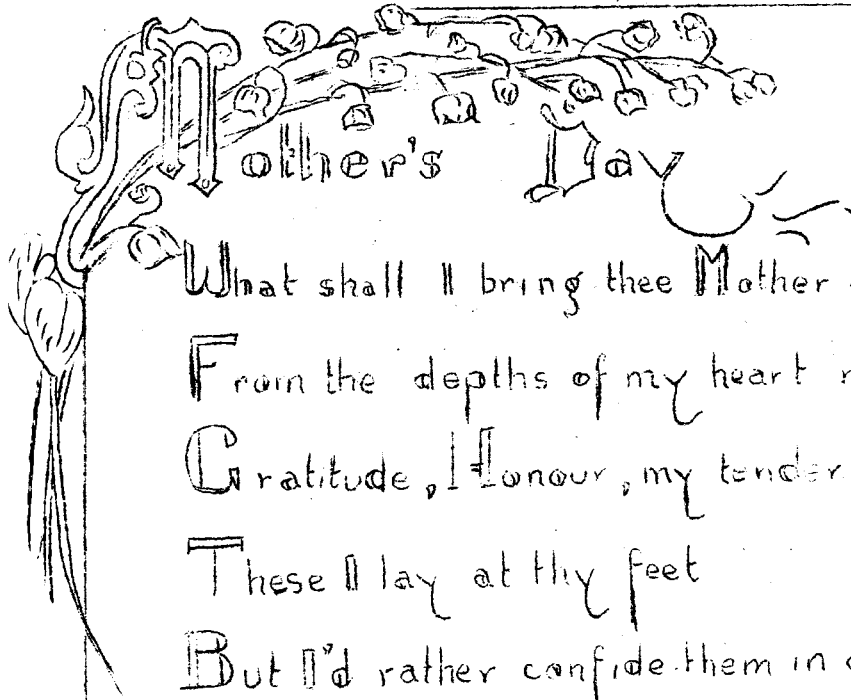 Mother's Day
What shall I bring thee Mother
From the depths of my heart
Gratitude, Honour, my tender
These I lay at thy feet
But I'd rather confide them in